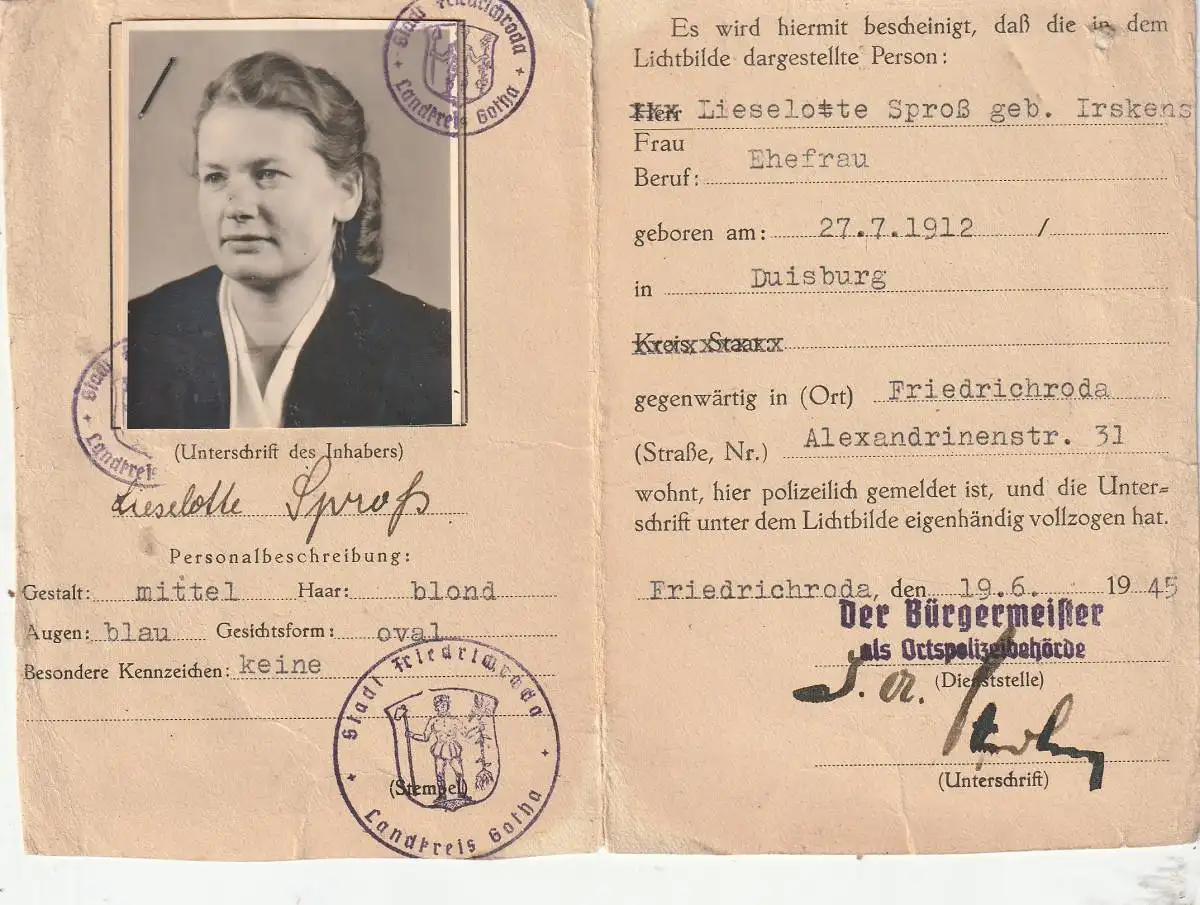 Stadt Friedrichroda
Landkreis Gotha
Stadt
Landkreis
(Unterschrift des Inhabers)
Lieselotte Sproß
Personalbeschreibung:
Gestalt: mittel Haar: blond
Augen: blau Gesichtsform: oval
Besondere Kennzeichen: keine
Stadt Friedrichroda
(Stempel)
Landkreis Gotha
Es wird hiermit bescheinigt, daß die in dem
Lichtbilde dargestellte Person:
Herr Lieselotte Sproß geb. Irskens
Frau
Beruf: Ehefrau
geboren am: 27.7.1912 /
in Duisburg
Kreis, Staat:
gegenwärtig in (Ort) Friedrichroda
(Straße, Nr.) Alexandrinenstr. 31
wohnt, hier polizeilich gemeldet ist, und die Unter-
schrift unter dem Lichtbilde eigenhändig vollzogen hat.
Friedrichroda, den 19.6. 1945
Der Bürgermeister
als Ortspolizeibehörde
(Dienststelle)
(Unterschrift)